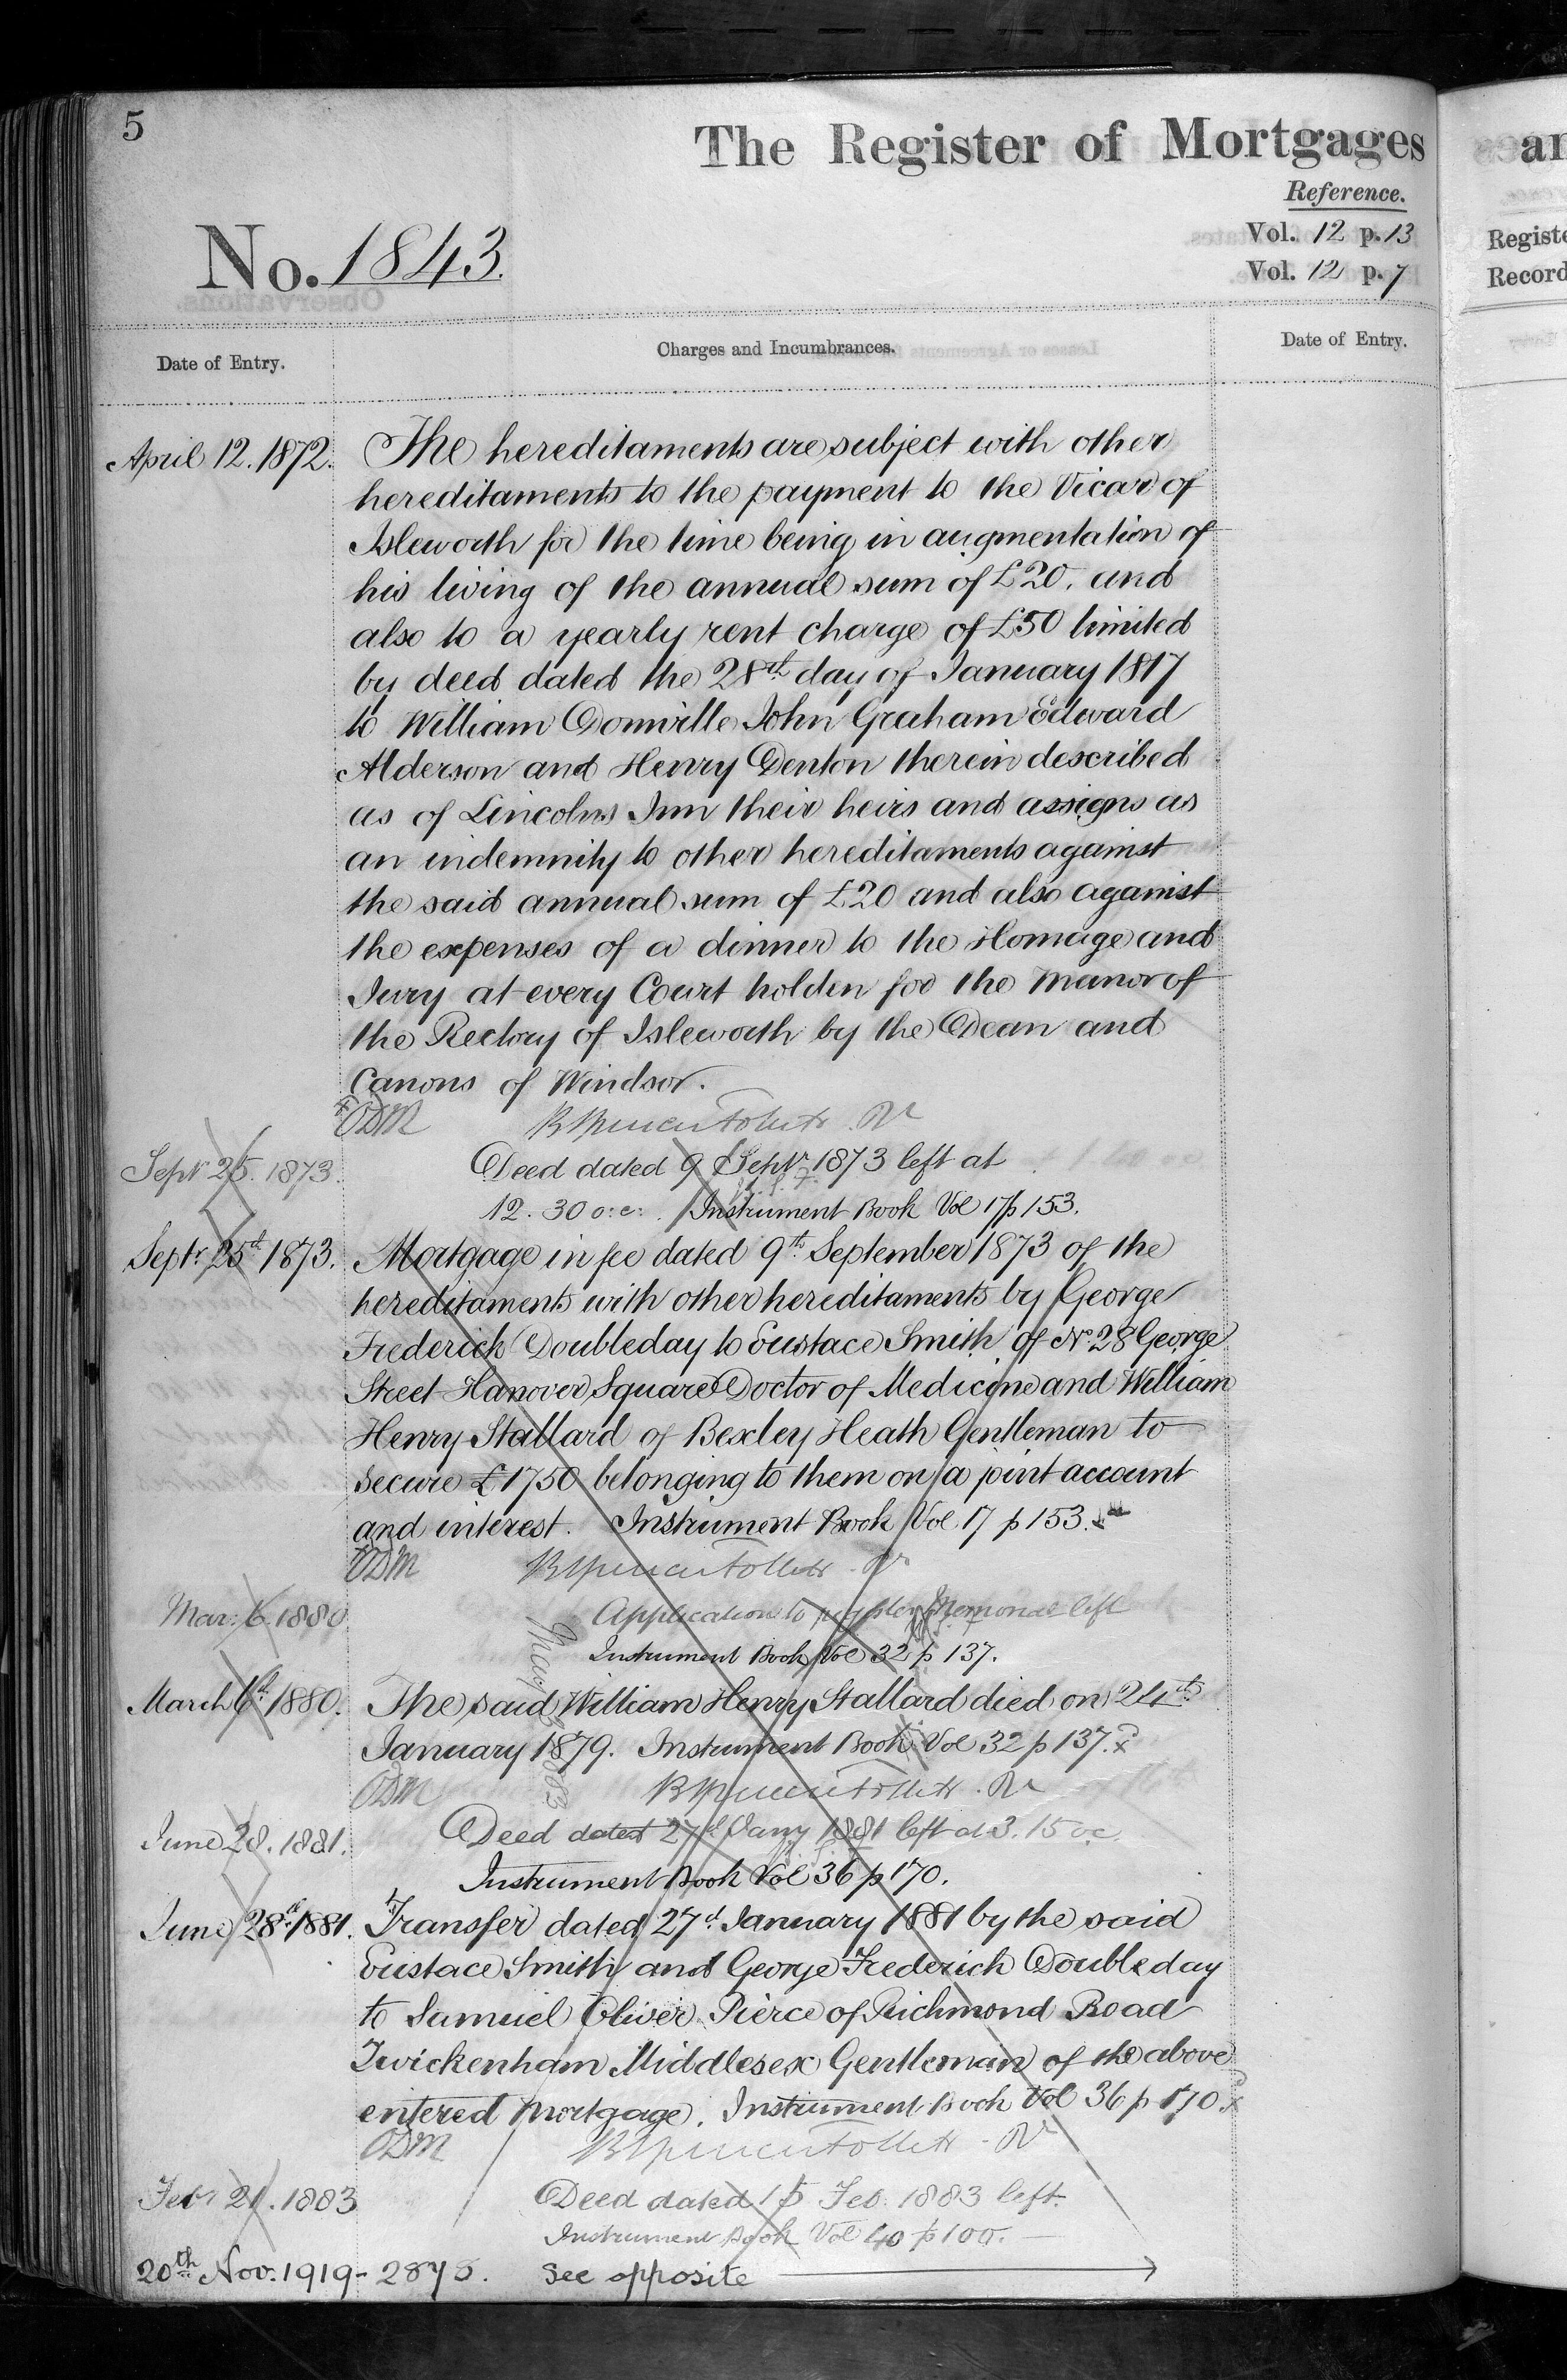 5
The Register of Mortgages
Reference.
No. 1843.
Vol. 12 p. 13
Vol. 12 p. 7
Registe
Record
Date of Entry.
Charges and Incumbrances.
Date of Entry.
April 12. 1872. The hereditaments are subject with other
hereditaments to the payment to the Vicar of
Isleworth for the time being in augmentation of
his living of the annual sum of £20. and
also to a yearly rent charge of £50 limited
by deed dated the 28th day of January 1817
to William Domville John Graham Edward
Alderson and Henry Denton therein described
as of Lincolns Inn their heirs and assigns as
an indemnity to other hereditaments against
the said annual sum of £20 and also against
the expenses of a dinner to the Homage and
Jury at every Court holden for the Manor of
the Rectory of Isleworth by the Dean and
Canons of Windsor.
ODM
Sept 25. 1873. Deed dated 9 Septr 1873 left at
12. 30 o:c: Instrument Book Vol 17 p 153.
Septr 25th 1873. Mortgage in fee dated 9th September 1873 of the
hereditaments with other hereditaments by George
Frederick Doubleday to Eustace Smith of No. 28 George
Street Hanover Square Doctor of Medicine and William
Henry Stallard of Bexley Heath Gentleman to
secure £1750 belonging to them on a joint account
and interest. Instrument Book Vol 17 p 153.
ODM
Mar: 6. 1880 Application to register Memorial left
Instrument Book Vol 32 p 137.
March 6th 1880. The said William Henry Stallard died on 24th
January 1879. Instrument Book Vol 32 p 137.
ODM
June 28. 1881. Deed dated 27th Jany 1881 left at 3. 15 o.c.
Instrument Book Vol 36 p 170.
June 28th 1881. Transfer dated 27th January 1881 by the said
Eustace Smith and George Frederick Doubleday
to Samuel Oliver Pierce of Richmond Road
Twickenham Middlesex Gentleman of the above
entered mortgage. Instrument Book Vol 36 p 170.
ODM
Feb 21. 1883 Deed dated 15 Feb. 1883 left.
Instrument Book Vol 40 p 100.
20th Nov. 1919 - 2878. See opposite